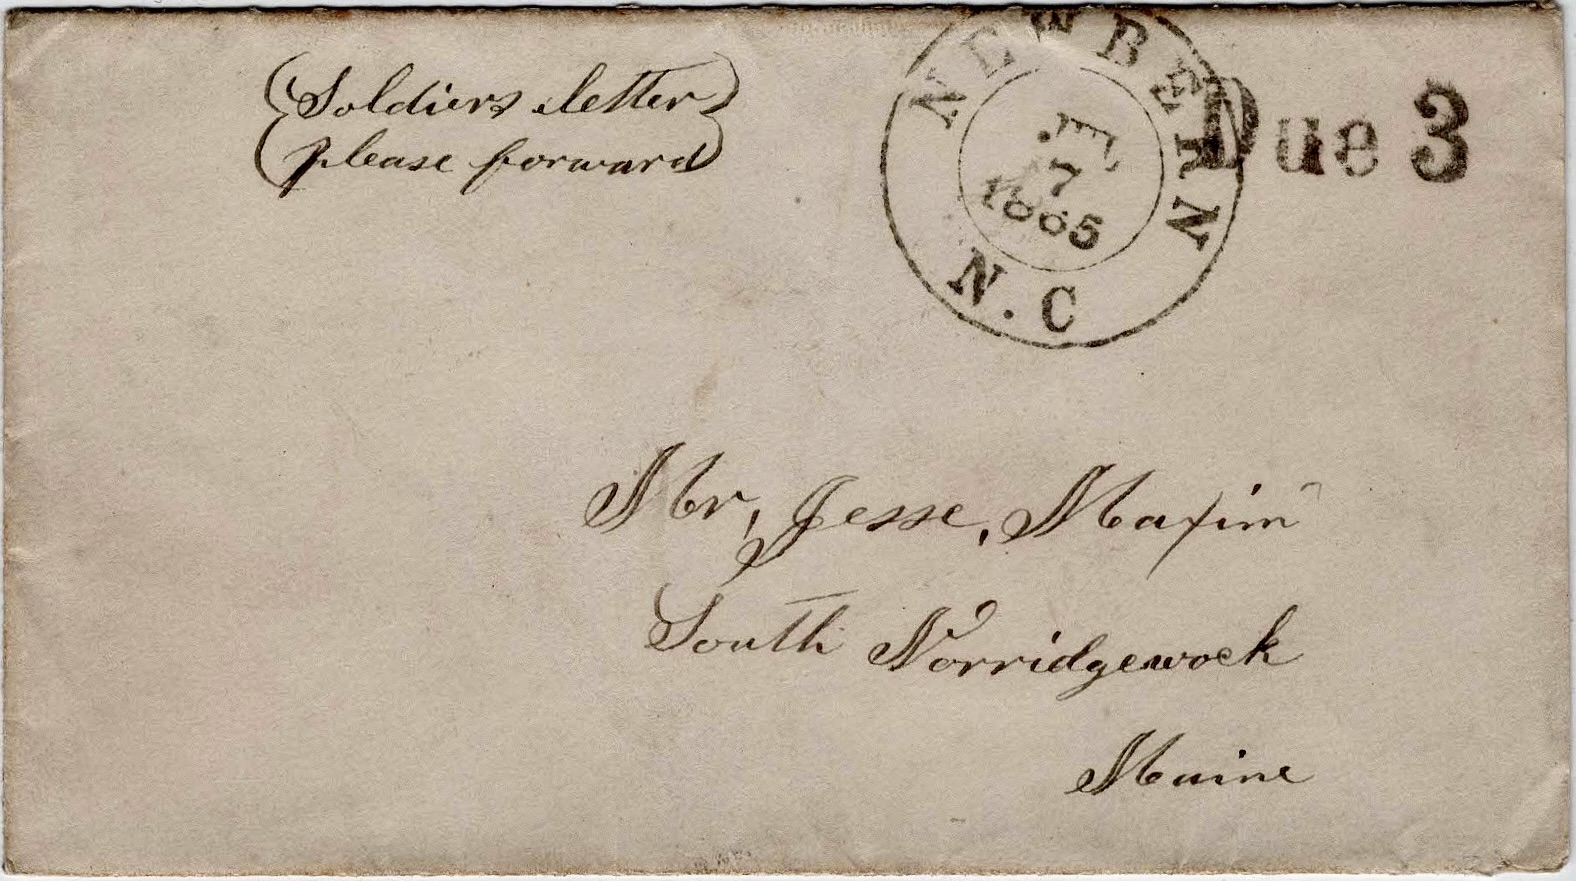 Soldiers letter
please forward
NEW BERN
7
1865
N.C
Due 3
Mr, Jesse, Maxim
South Norridgewock
Maine